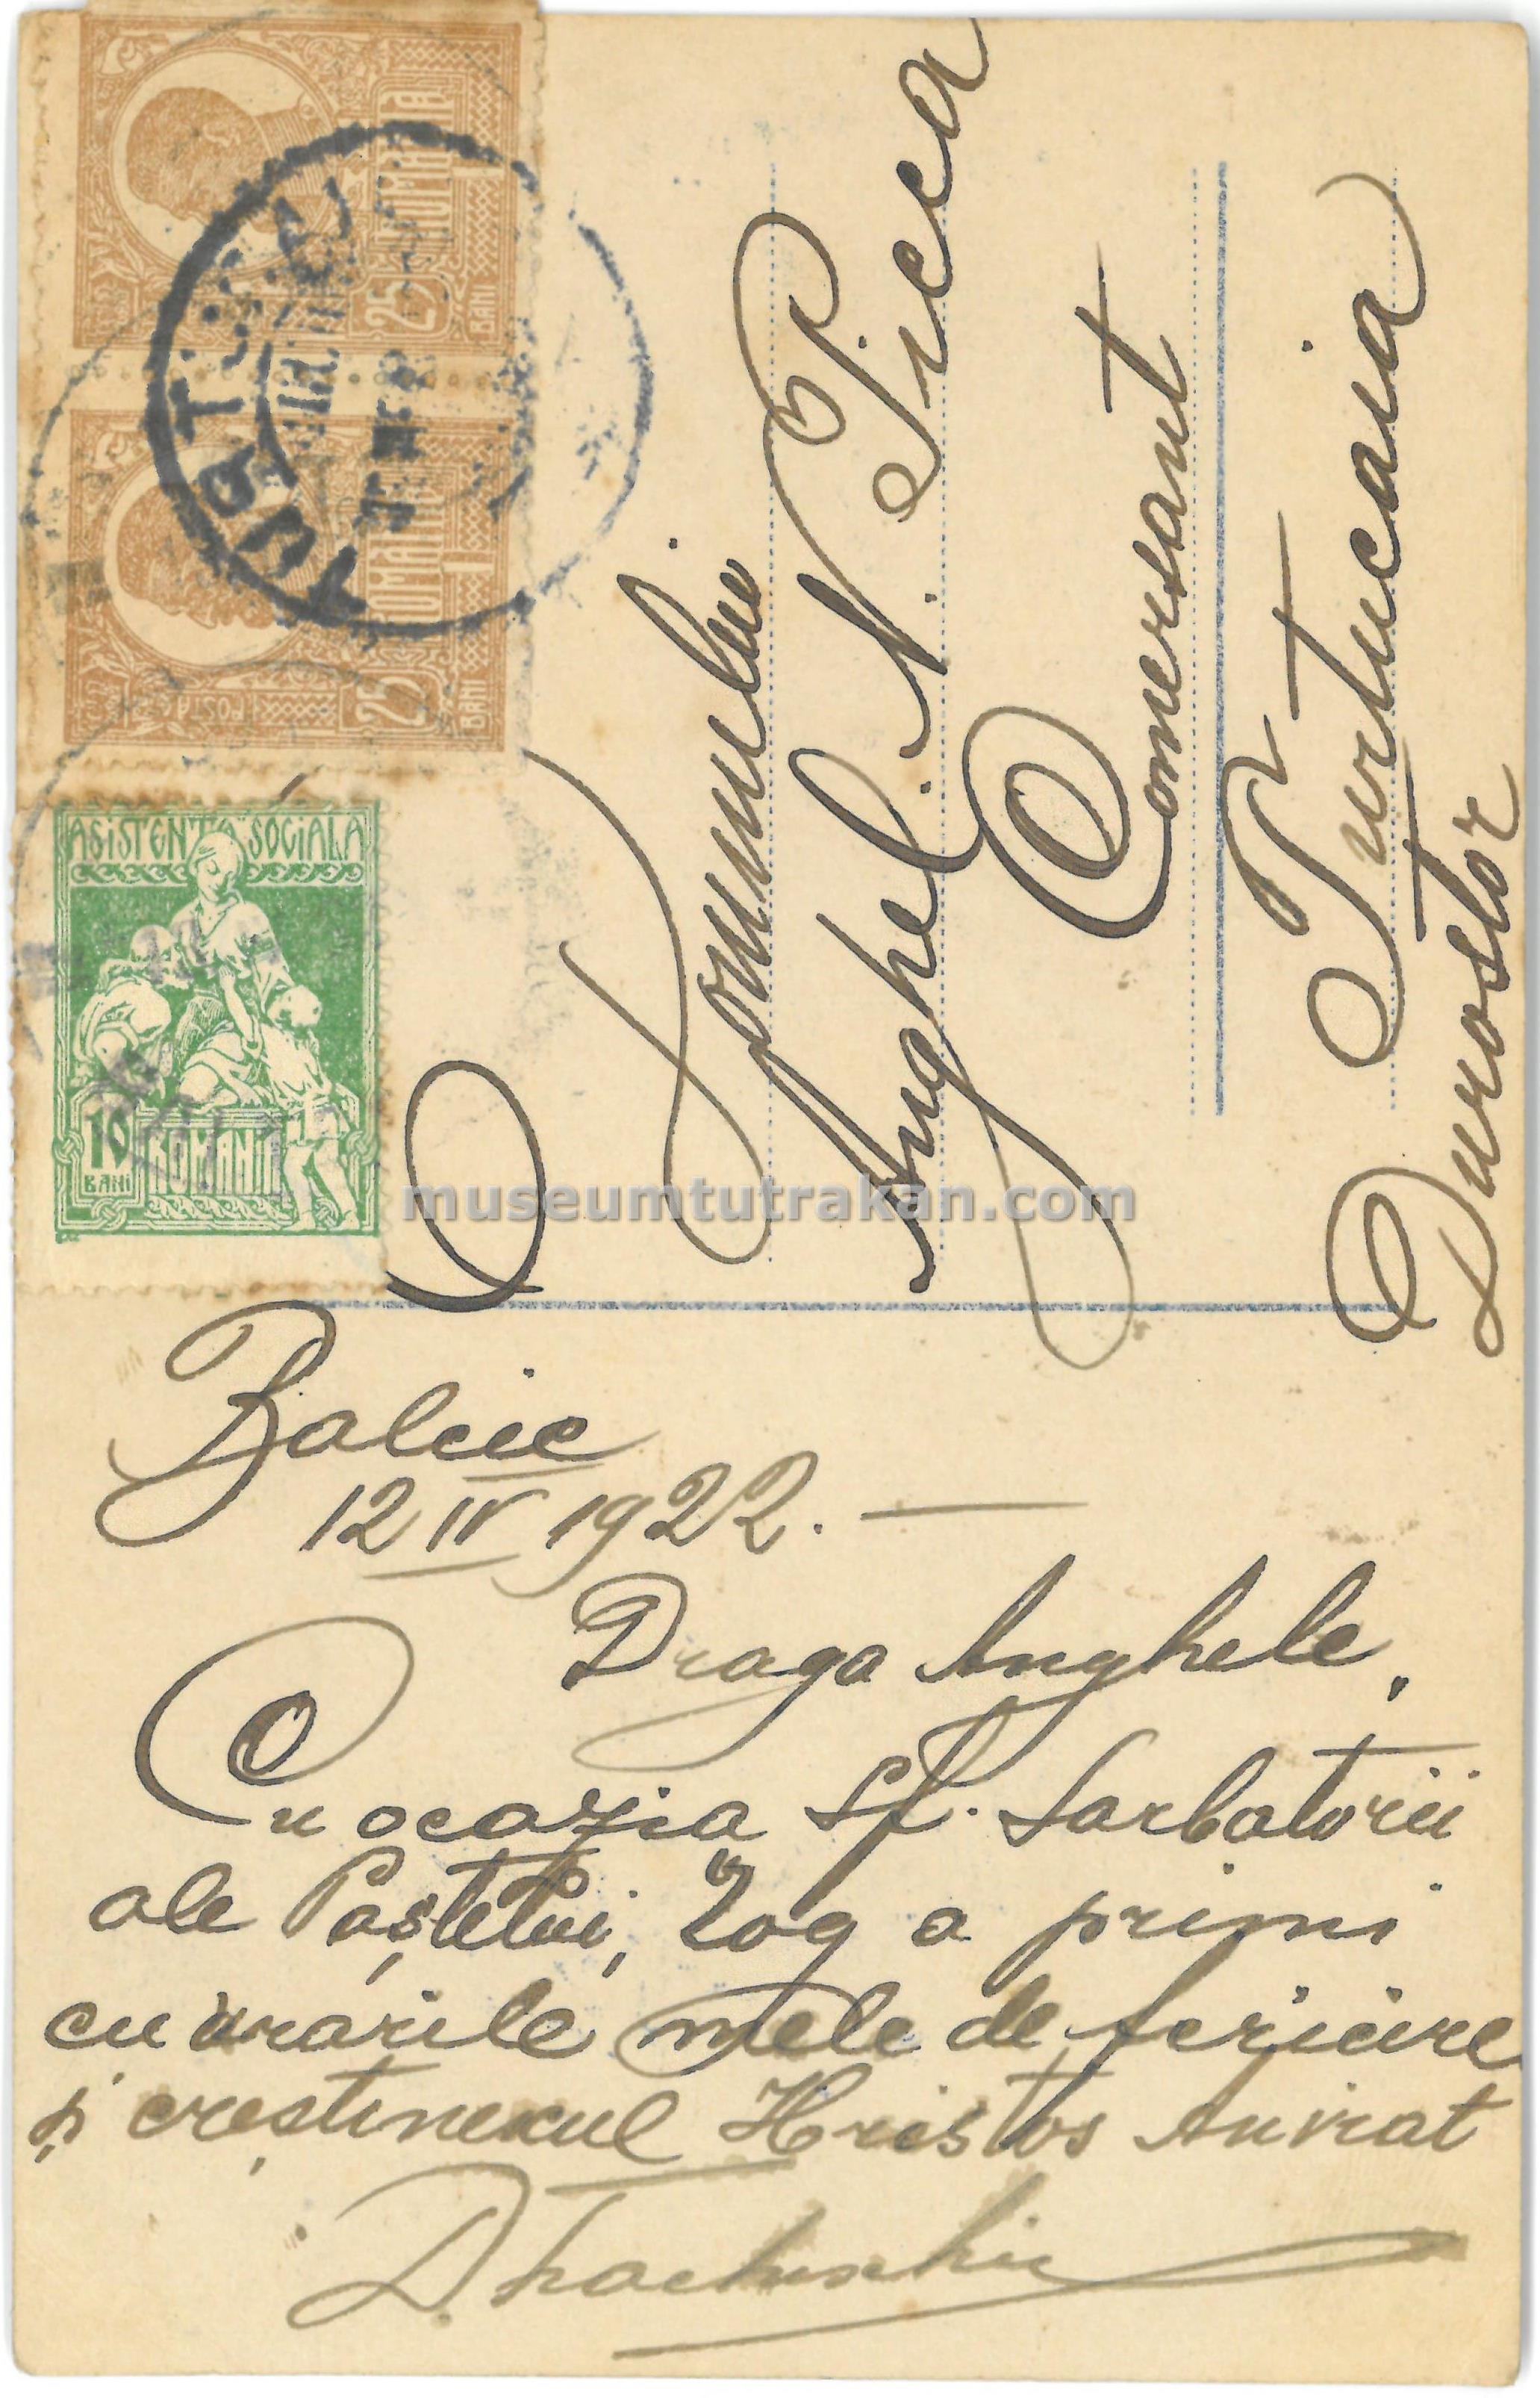 ROMANIA
25
BANI
POSTA
ROMANIA
25
BANI
ASISTENȚA SOCIALA
10
BANI
ROMANIA
Domnului
Anghel. N. Pica
Comersant
Turtucaia
Durostor
museumtutrakan.com
Balcic
12 IV 1922. —
Draga Anghele,
Cu ocazia Sf. Sarbatorii
ale Paștelui, Rog a primi
cu urarile mele de fericire
și creștinescul Hristos Anviat